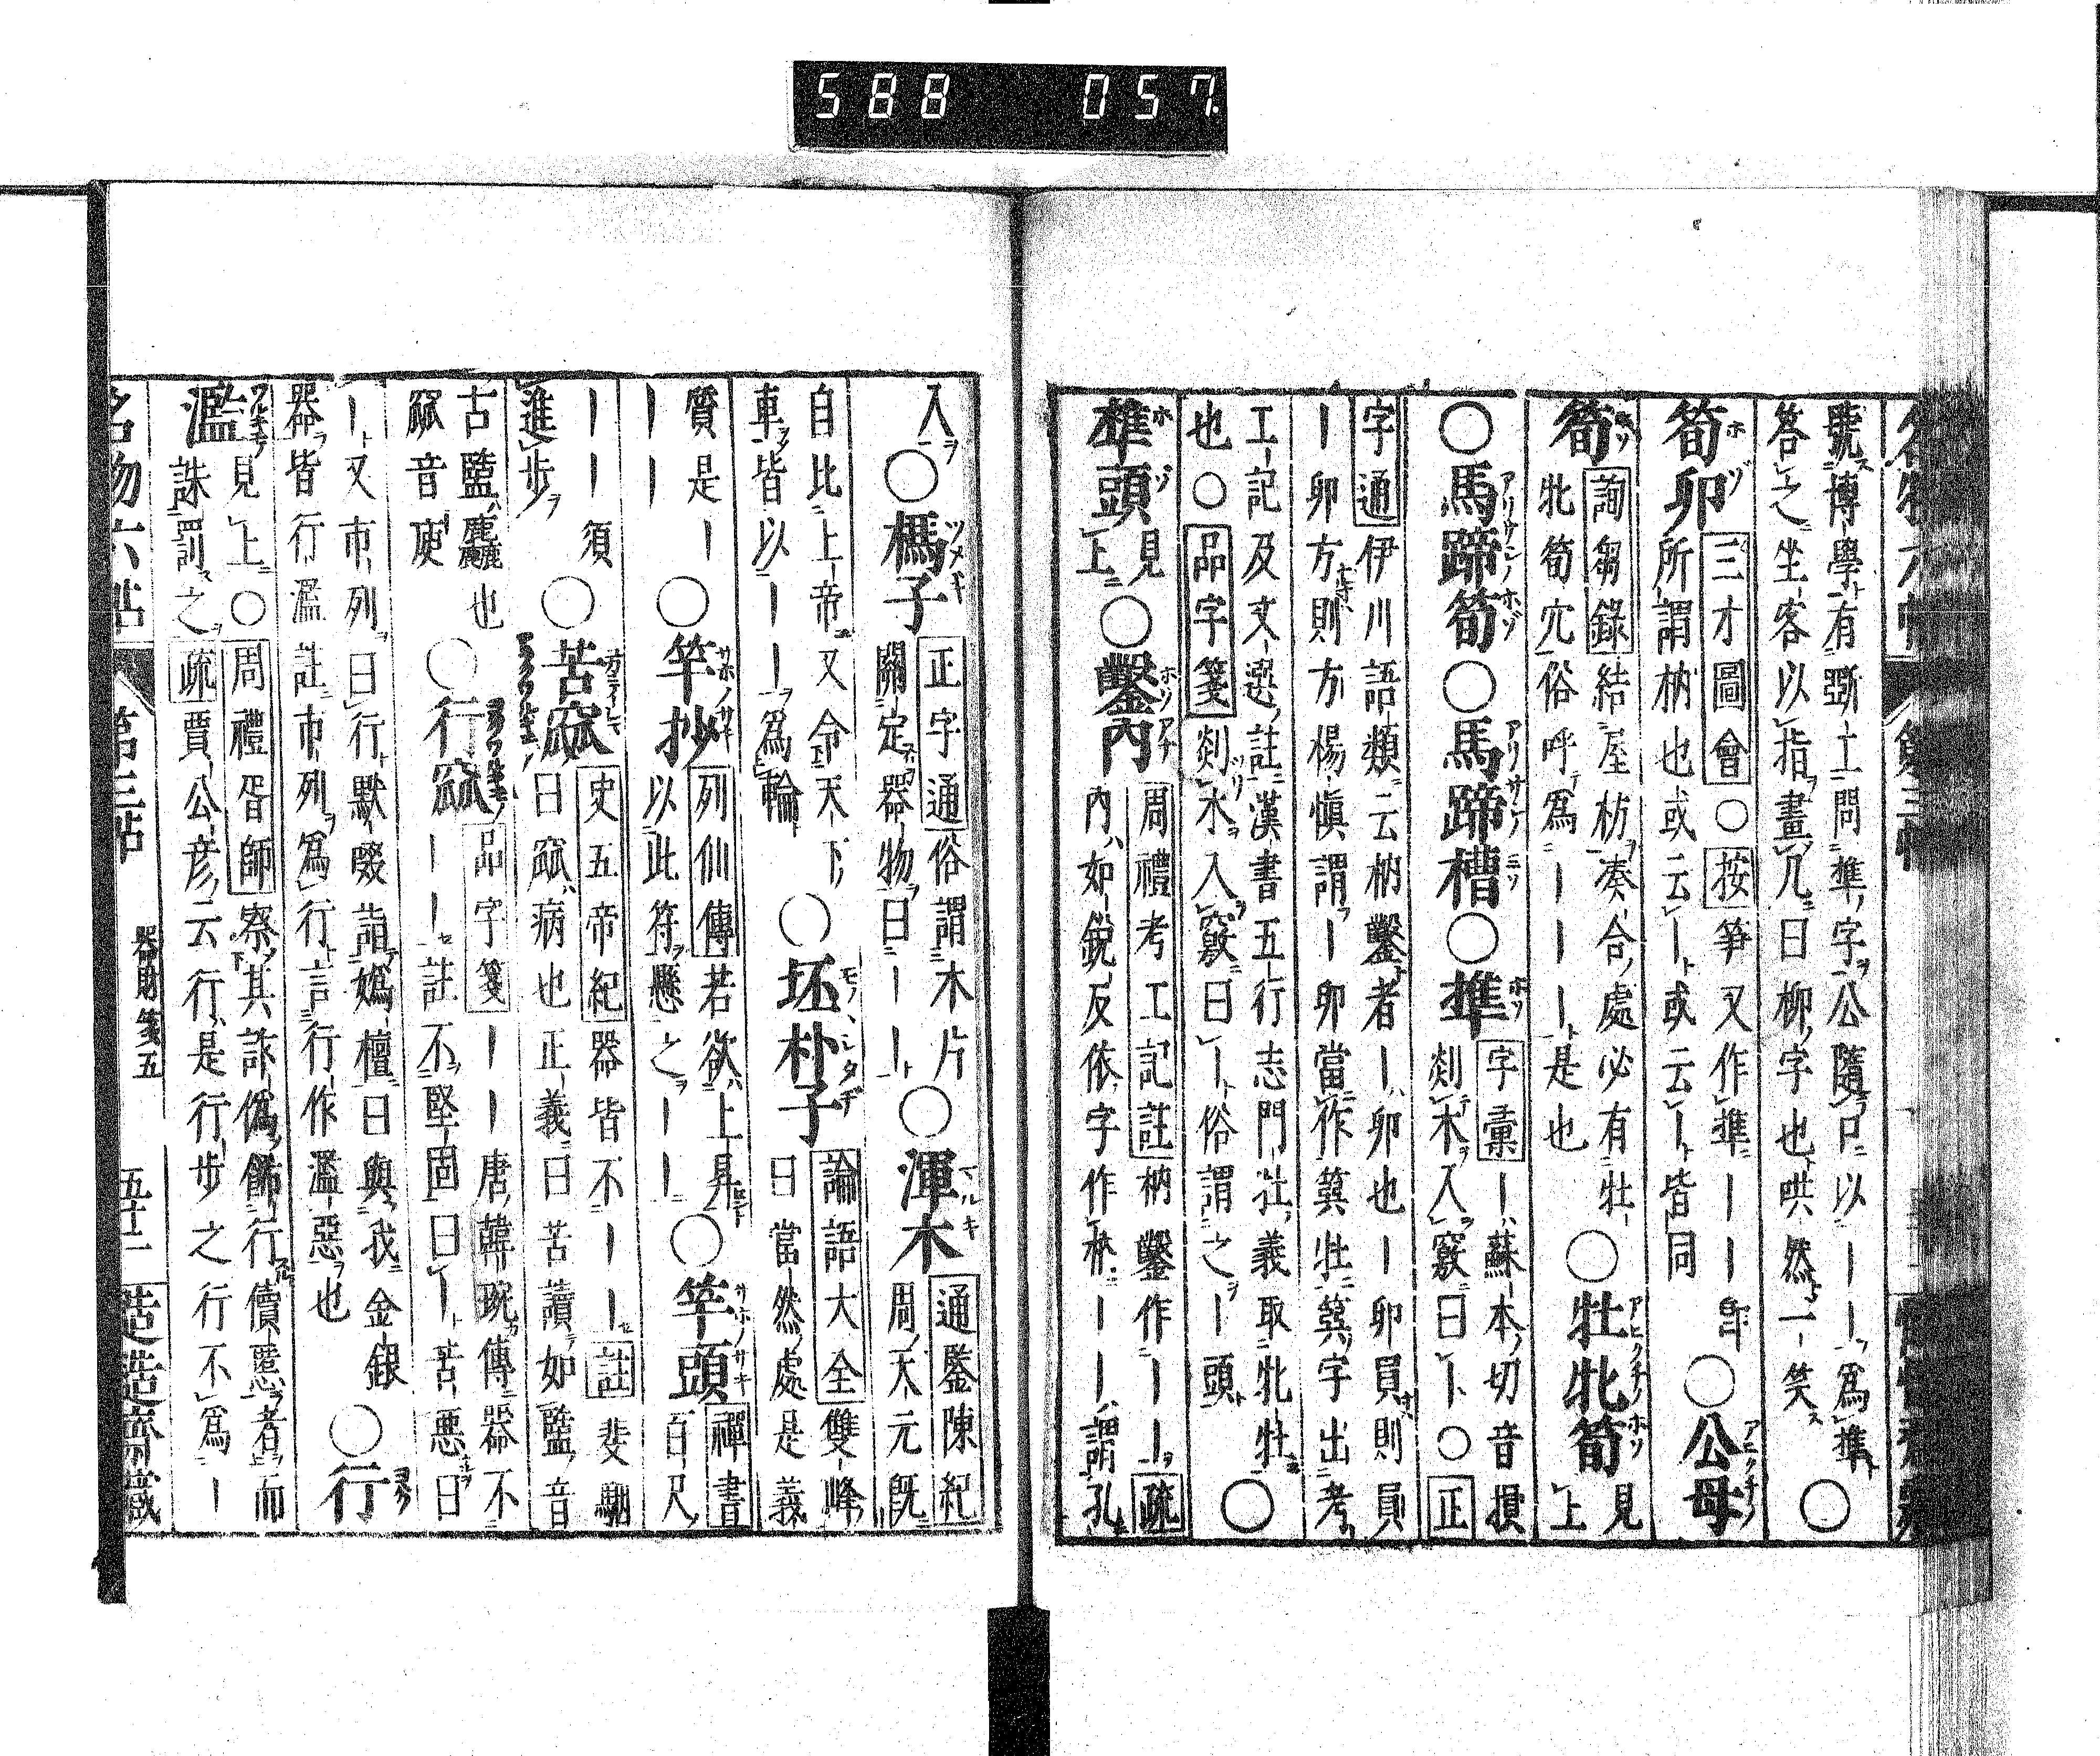 588 057
號博學有斲工問榫字公隨口以丨丨爲榫〇
答之坐客以指畫几曰柳字也哄然一笑
筍卯
三才圖會〇按筍又作準丨丨卽
所謂枘也或云丨或云丨皆同
〇公母
筍
詢芻錄結屋枋凑合處必有牡
牝筍穴俗呼爲丨丨丨丨是也
〇牡牝筍
見
上
〇馬蹄筍〇馬蹄槽〇榫
字彙丨蘇本切音損
剡木入竅曰丨〇正
字通伊川語類云枘鑿者丨卯也丨卯員則員
丨卯方則方楊愼謂丨卯當作簨牡簨字出考
工記及文選註漢書五行志門牡義取牝牡
也〇品字箋剡木入竅曰丨俗謂之丨頭
〇
榫頭
見
上
〇鑿內
周禮考工記註枘鑿作丨丨疏
內如銳反依字作枘丨丨謂孔
入〇榪子
正字通俗謂木片
關定器物曰丨丨
〇渾木
通鑒陳紀
周天元旣
自比上帝又令天下
車皆以丨丨爲輪
〇坯朴子
論語大全雙峰
曰當然處是義
質是丨
丨丨
〇竿抄
列仙傳若欲上昇
以此符懸之丨丨
〇竿頭
禪書
百尺
丨丨須
進步
〇苦窳
史五帝紀器皆不丨丨註裴駰
曰窳病也正義曰苦讀如盬音
古盬麤也
窳音庾
〇行窳
品字箋丨丨唐韓琬傳器不
丨丨註不堅固曰丨苦悪曰
丨又市列曰行默啜詣嬀檀曰與我金銀
器皆行濫註市列爲行言行作濫惡也
〇行
濫
見上〇周禮胥師察其詐僞飾行儥慝者而
誅罰之疏賈公彥云行是行步之行不爲丨
名物六帖
第三帖
器財箋五
五十二